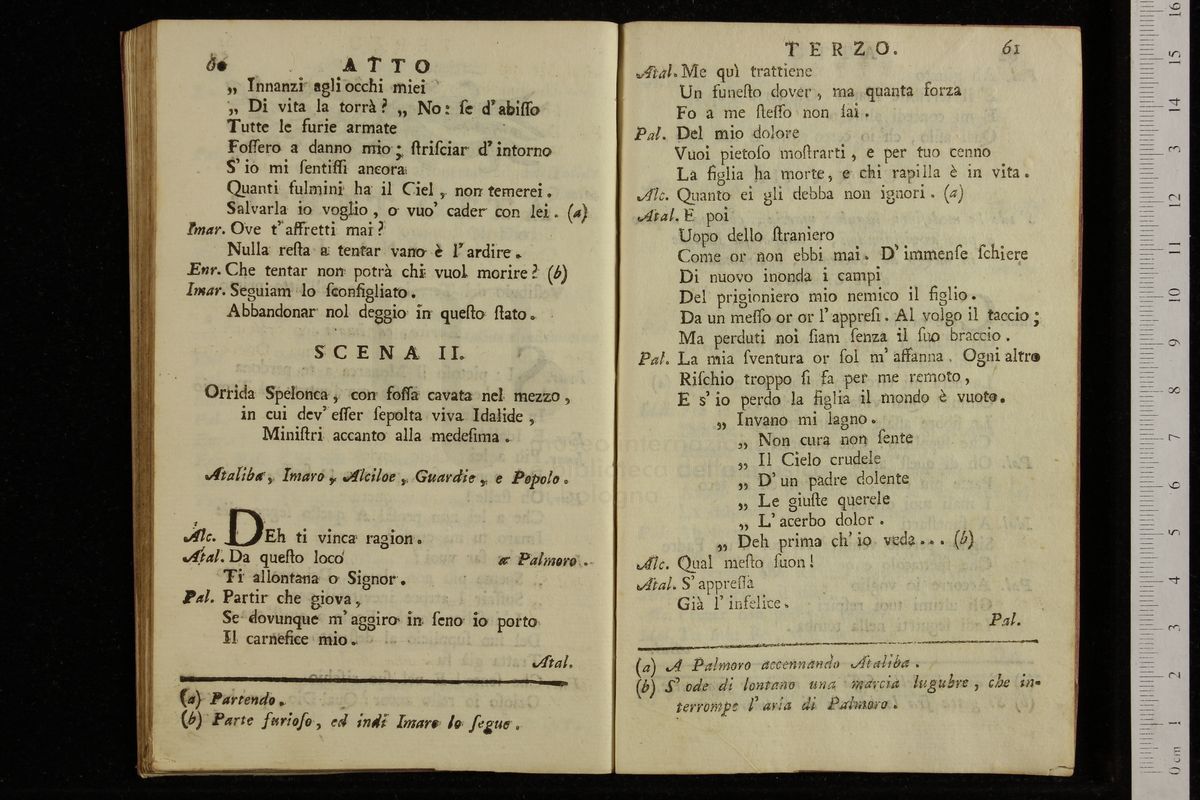 ATTO
„ Innanzi agli occhi miei
„ Di vita la torrà? „ No: ſe d'abiſſo
Tutte le furie armate
Foſſero a danno mio; ſtriſciar d'intorno
S'io mi ſentiſſi ancora
Quanti fulmini ha il Ciel, non temerei.
Salvarla io voglio, o vuo' cader con lei. (a)
Imar. Ove t'affretti mai?
Nulla reſta a tentar vano è l'ardire.
Enr. Che tentar non potrà chi vuol morire? (b)
Imar. Seguiam lo ſconſigliato.
Abbandonar nol deggio in queſto ſtato.
SCENA II.
Orrida Spelonca, con foſſa cavata nel mezzo,
in cui dev'eſſer ſepolta viva Idalide,
Miniſtri accanto alla medeſima.
Ataliba, Imaro, Alciloe, Guardie, e Popolo.
Alc. DEh ti vinca ragion.
Atal. Da queſto loco a Palmoro.
Ti allontana o Signor.
Pal. Partir che giova,
Se dovunque m'aggiro in ſeno io porto
Il carnefice mio.
Atal.
(a) Partendo.
(b) Parte furioſo, ed indi Imaro lo ſegue.
TERZO. 61
Atal. Me quì trattiene
Un funeſto dover, ma quanta forza
Fo a me ſteſſo non ſai.
Pal. Del mio dolore
Vuoi pietoſo moſtrarti, e per tuo cenno
La figlia ha morte, e chi rapilla è in vita.
Alc. Quanto ei gli debba non ignori. (a)
Atal. E poi
Uopo dello ſtraniero
Come or non ebbi mai. D'immenſe ſchiere
Di nuovo inonda i campi
Del prigioniero mio nemico il figlio.
Da un meſſo or or l'appreſi. Al volgo il taccio;
Ma perduti noi ſiam ſenza il ſuo braccio.
Pal. La mia ſventura or ſol m'affanna. Ogni altro
Riſchio troppo ſi fa per me remoto,
E s'io perdo la figlia il mondo è vuoto.
„ Invano mi lagno.
„ Non cura non ſente
„ Il Cielo crudele
„ D'un padre dolente
„ Le giuſte querele
„ L'acerbo dolor.
„ Deh prima ch'io veda... (b)
Alc. Qual meſto ſuon!
Atal. S'appreſſa
Già l'infelice.
Pal.
(a) A Palmoro accennando Ataliba.
(b) S'ode di lontano una marcia lugubre, che in-
terrompe l'aria di Palmoro.